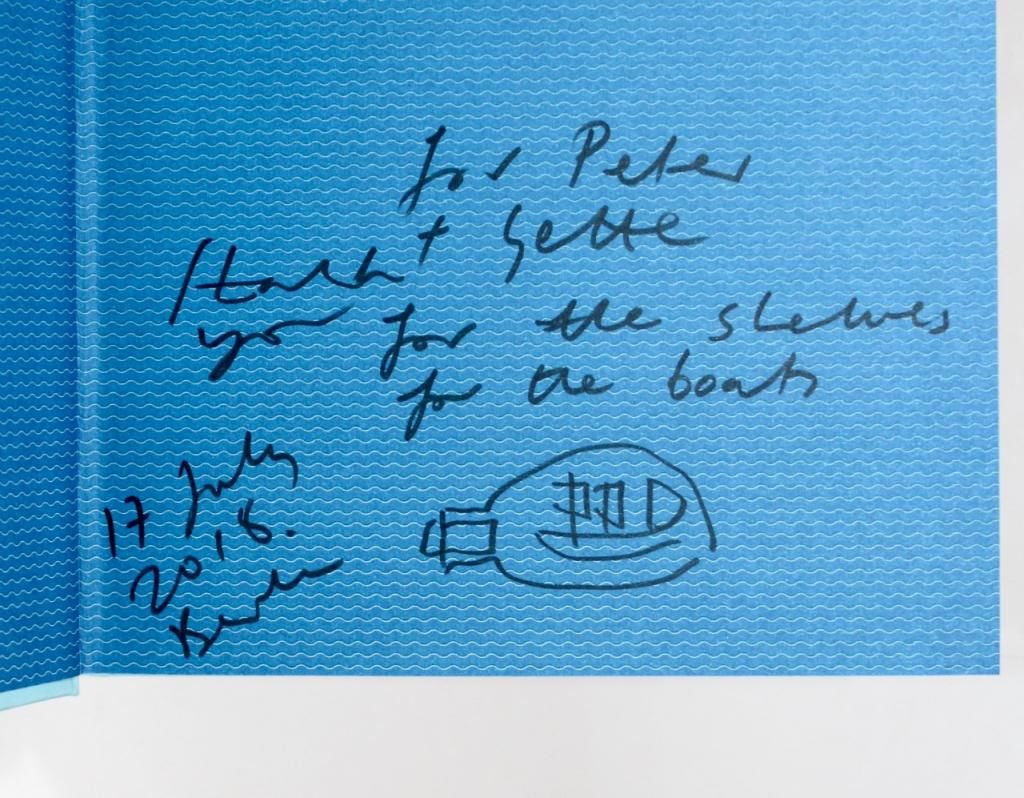 for Peter
+ Gette
thank
you for the shelves
for the boats
17 July
2018.
Berlin